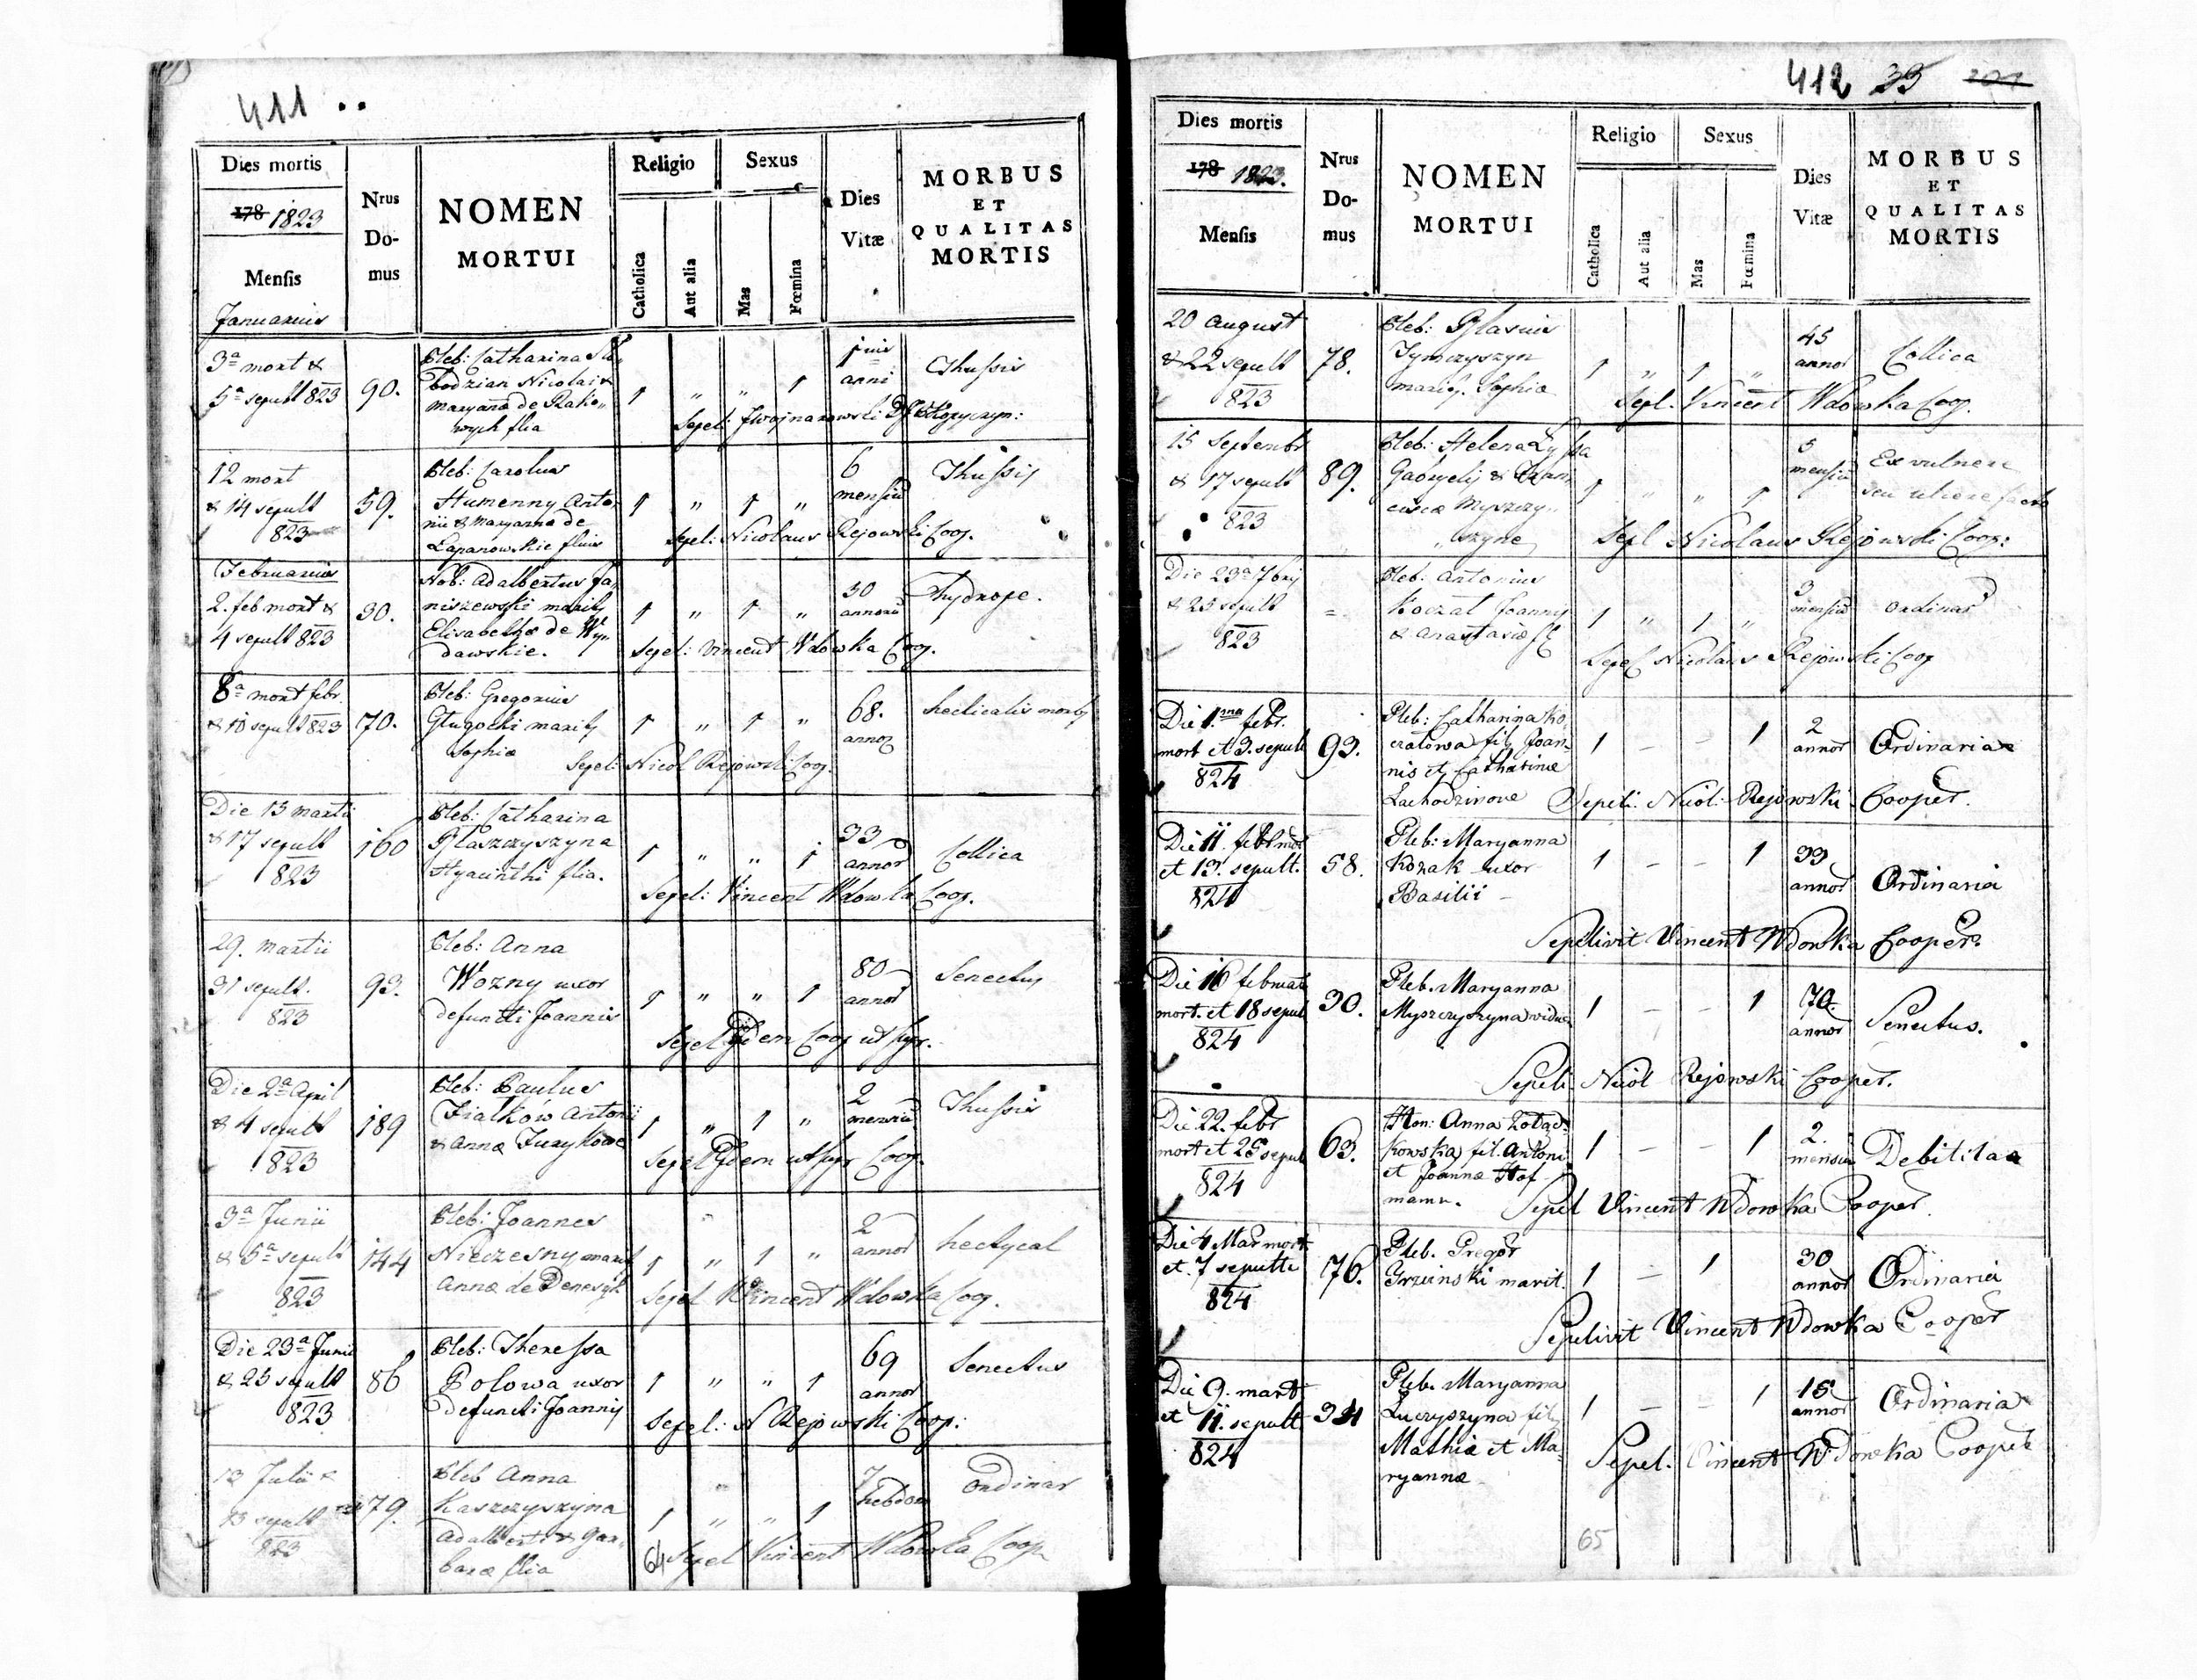 411 ..
Dies mortis
178 1823
Mensis
Januarius
Nrus
Do-
mus
NOMEN
MORTUI
Religio
Catholica
Aut alia
Sexus
Mas
Fœmina
Dies
Vitæ
MORBUS
ET
QUALITAS
MORTIS
3a mort &
5a sepult 823
90.
Pleb: Catharina
bodzian Nicolai &
Maryanna de Rako„
wych filia
1 „ „ 1
anni
Thussis
Sepel:
12 mort
& 14 sepult
823
59.
Pleb: Carolus
Humenny Anto
nii & Maryanna de
Łapanowskie filius
1 „ 1 „
6
mensiu
Thussis
Sepel: Nicolaus Rejowski Coop.
Februarius
2. feb mort &
4 sepult 823
30.
Nob: Adalbertus Ja
niszewski marit9
Elisabethæ de Wy„
dawskie.
1 „ 1 „
30
annoru
Hydrope.
Sepel: Vincent Wdowka Coop.
8a mort febr
& 10 sepult 823
70.
Pleb: Gregorius
Gługocki marit9
Sophiæ
1 „ 1 „
68.
annor
hecticalis morb9
Sepel: Nicol Rejowski Coop.
Die 15 martii
& 17 sepult
823
160
Pleb: Catharina
Błaszczyszyna
Hyacinthi filia.
1 „ „ 1
33
annor
Collica
Sepel: Vincent Wdowka Coop.
29. Martii
31 sepult.
823
93.
Pleb: Anna
Wozny uxor
defuncti Joannis
1 „ „ 1
80
annor
Senectus
Sepel Idem Coop ut supr.
Die 2a April
& 4 sepult
823
189
Pleb: Paulus
Fiałków Antonii
& Annæ Jurykowe
1 „ 1 „
2
mensiu
Thussis
Sepel Idem ut supr Coop.
3a Junii
& 5a sepult
823
144
Pleb: Joannes
Nieczesny marit
Annæ de Denesyk
1 „ 1 „
2
annor
hectycal
Sepel Vincent Wdowka Coop.
Die 23a Junii
& 25 sepult
823
86
Pleb: Theressa
Polowa uxor
defuncti Joannis
1 „ „ 1
69
annor
Senectus
Sepel: N Rejowski Coop:
13 Julii &
sepult
823
179.
Pleb Anna
Kaszczyszyna
Adalberti & Bar„
baræ filia
1 „ „ 1
7
hebdom
Ordinar
Sepel Vincent Wdowka Coop
64
412 35
Dies mortis
178 1823.
Mensis
Nrus
Do-
mus
NOMEN
MORTUI
Religio
Catholica
Aut alia
Sexus
Mas
Fœmina
Dies
Vitæ
MORBUS
ET
QUALITAS
MORTIS
20 August
& 22 sepult
823
78.
Pleb: Blasius
Tymczyszyn
marit9. Sophiæ
1 „ 1 „
45
annor
Collica
Sepl. Vincent Wdowka Coop.
15 Septembr
& 17 sepult
823
89.
Pleb: Helena Łyssa
Gabryelis & Fran
ciscæ Myszczy„
„szyne
1 „ „ 1
5
mensiu
Ex vulnere
seu ulcere facto
Sepl Nicolaus Rejowski Coop:
Die 23a 7bris
& 25 sepult
823
=
Pleb: Antonius
Koczał Joannis
& Anastasiæ
1 „ 1 „
3
mensiu
Ordinar
Sepel Nicolaus Rejowski Coop
Die 1.ma febr.
mort et 3. sepult
824
93.
Pleb: Catharina Ko
czałowa fil9 Joan-
nis et Catharinæ
Lachodzinove
1 – – 1
2
annor
Ordinaria
Sepeli: Nicol: Rejowski Cooper.
Die 11. febr mor
et 13. sepult.
824
58.
Pleb: Maryanna
Kozak uxor
Basilii –
1 – – 1
33
annor
Ordinaria
Sepelivit Vincent Wdowka Cooper.
Die 16 februar
mort. et 18 sepul
824
30.
Pleb. Maryanna
Myszczyszyna vidua
1 – – 1
70
annor
Senectus.
Sepeli Nicol Rejowski Cooper.
Die 22. febr
mort et 25 sepul
824
63.
Hon: Anna Żołąd-
kowska fil. Antoni
et Joannæ Hof
mann.
1 – – 1
2.
mensiu
Debilitas
Sepel Vincent Wdowka Cooper.
Die 4 Mar mort
et 7 sepulta
824
76.
Pleb. Gregor
Grzeinski marit.
1 – 1
30
annor
Ordinaria
Sepelivit Vincent Wdowka Cooper
Die 9. mart
et 11. sepult
824
34
Pleb. Maryanna
Łuczyszyna fil9
Mathiæ et Ma-
ryannæ
1 – – 1
15
annor
Ordinaria
Sepel. Vincent Wdowka Cooper
65